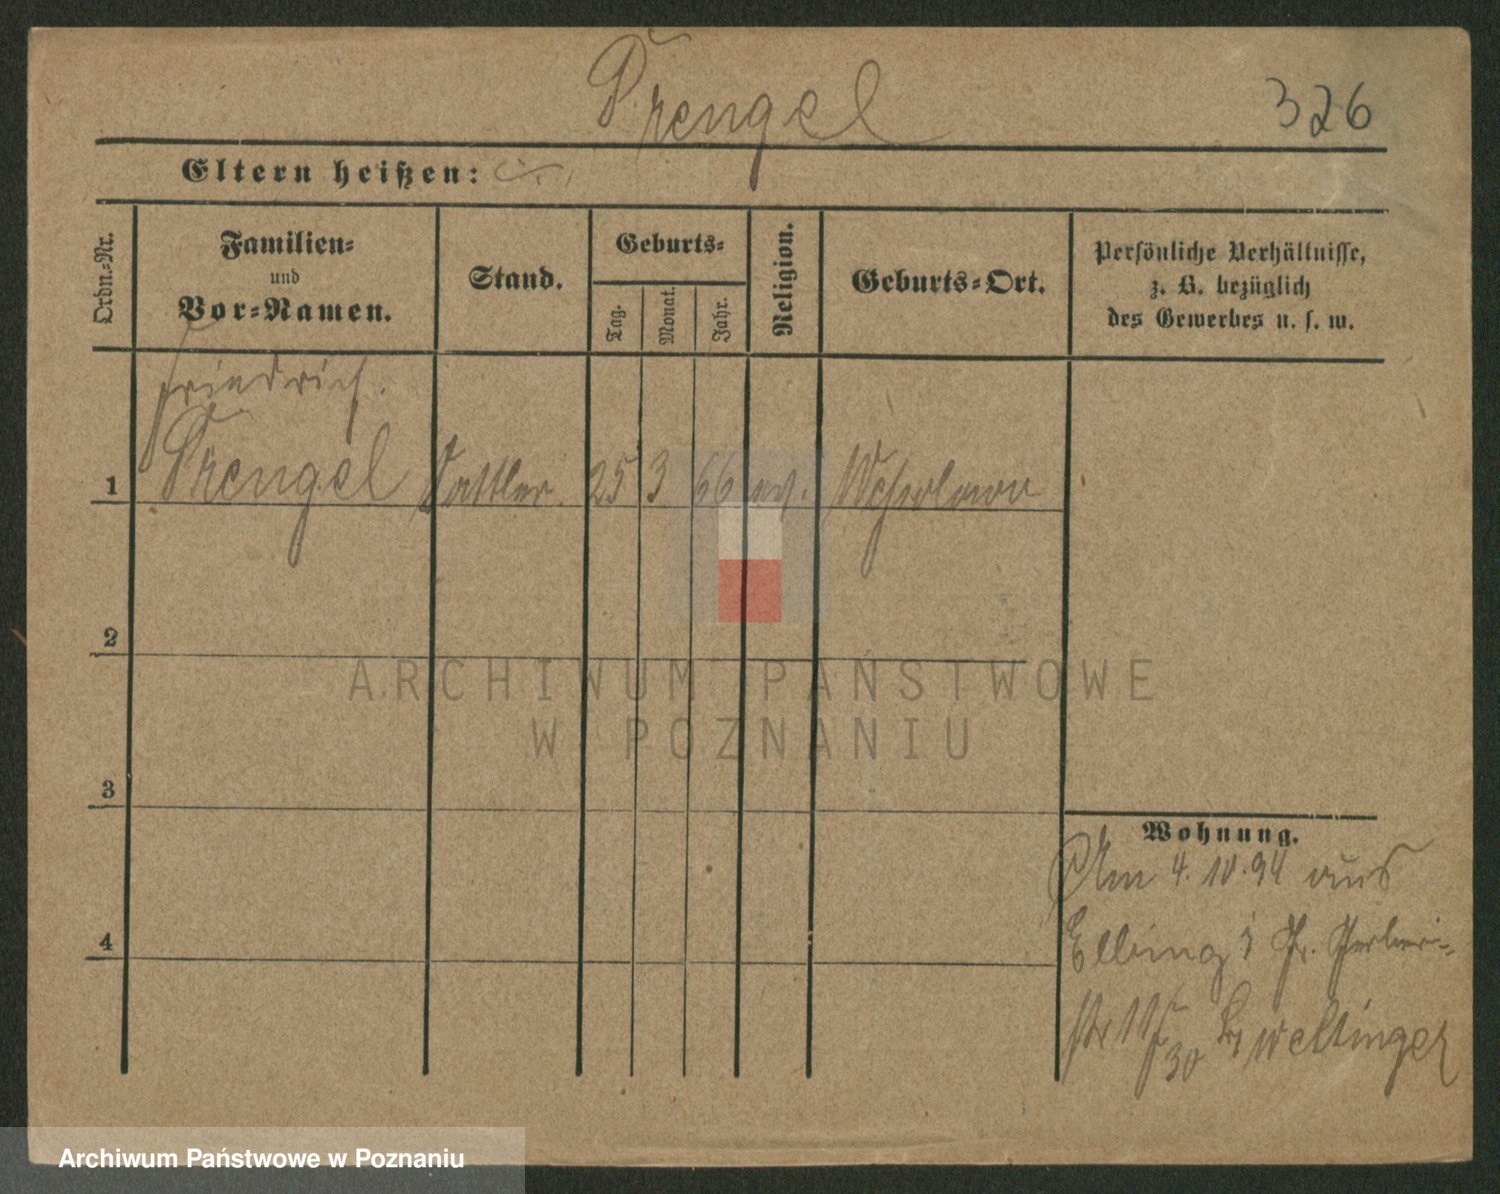 Prengel
326
Eltern heißen:
Ordn.-Nr.
Familien-
und
Vor-Namen.
Stand.
Geburts-
Tag.
Monat.
Jahr.
Religion.
Geburts-Ort.
Persönliche Verhältnisse,
z. B. bezüglich
des Gewerbes u. s. w.
Friedrich.
1 Prengel Sattler 25 3 66 ev.
2
3
4
Wohnung.
Am 4.10.94 aus
Elbing
30
ARCHIWUM PAŃSTWOWE
W POZNANIU
Archiwum Państwowe w Poznaniu